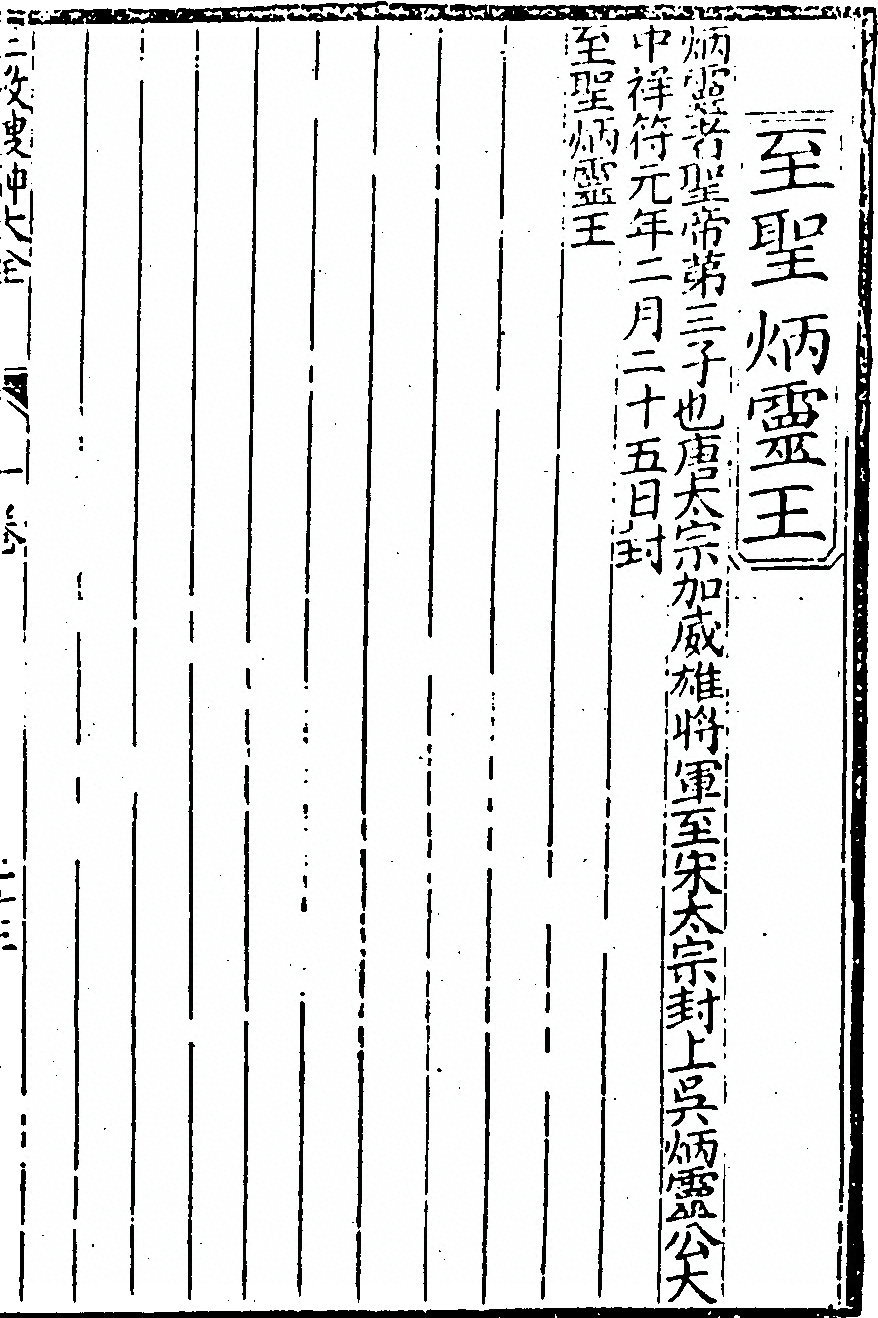 至聖炳靈王
炳靈者聖帝第三子也唐太宗加威雄將軍至宋太宗封上吳炳靈公大
中祥符元年二月二十五日封
至聖炳靈王